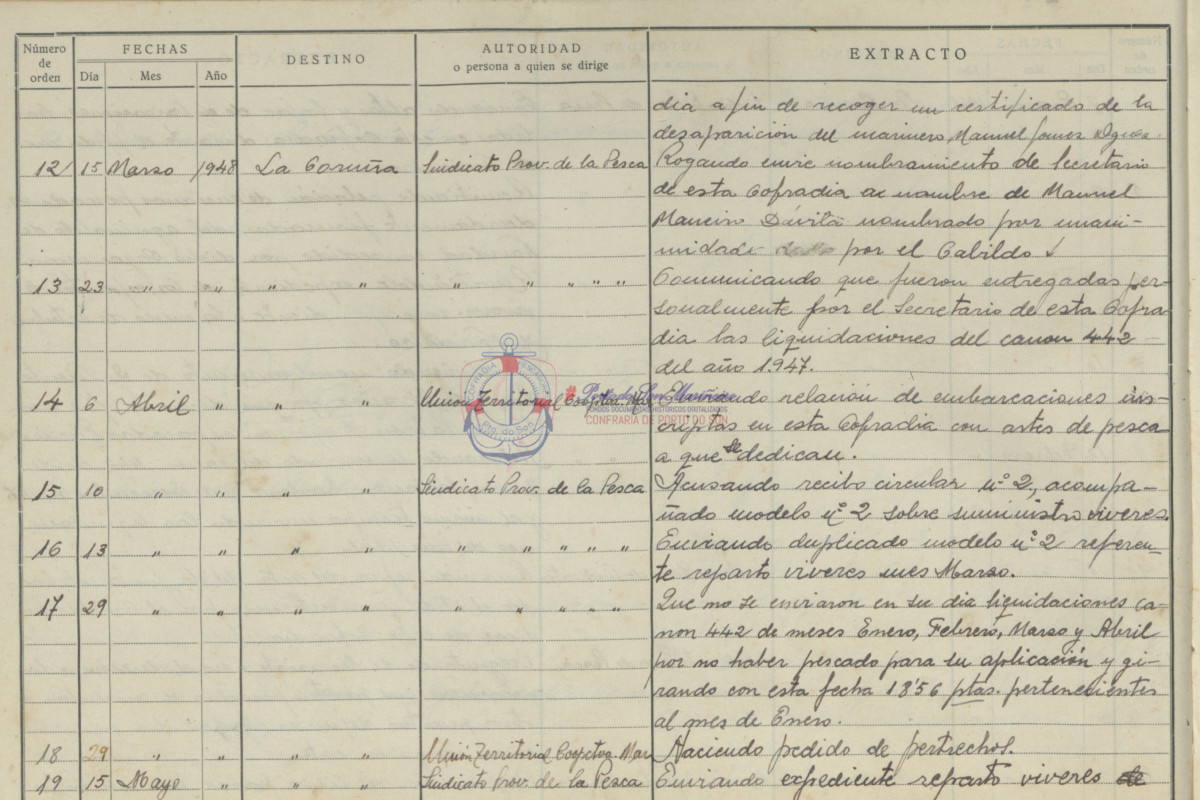 Número de orden FECHAS DESTINO AUTORIDAD o persona a quien se dirige EXTRACTO
Día Mes Año
dia a fin de recoger un certificado de la
desaparición del marinero, Manuel Gomez
12 15 Marzo 1948 La Coruña Sindicato Prov. de la Pesca Rogando envie nombramiento de Secretario
de esta Cofradia a nombre de Manuel
Maneiro Dávila nombrado por unani-
midade por el Cabildo
13 23 " " " " " " " " " Comunicando que fueron entregadas per-
sonalmente por el Secretario de esta Cofra
dia las liquidaciones del canon 442
del año 1.947.
14 6 Abril " " " Union Territorial Cooptva. Mar Enviando relación de embarcaciones ins-
criptas en esta Cofradia con artes de pesca
a que se dedican.
COFRADIA PESCADORES
Pto. do Son
Porto do Son Mariñeiro
FONDOS DOCUMENTAIS HISTÓRICOS DIGITALIZADOS
CONFRARIA DE PORTO DO SON
15 10 " " " " Sindicato Prov. de la Pesca Acusando recibo circular nº 2, acompa-
ñado modelo nº 2 sobre suministro viveres.
16 13 " " " " " " " " " Enviando duplicado modelo nº 2 referen-
te reparto viveres mes Marzo.
17 29 " " " " " " " " " Que no se enviaron en su dia liquidaciones ca-
non 442 de meses Enero, Febrero, Marzo y Abril
por no haber pescado para su aplicación y gi-
rando con esta fecha 18'56 ptas. pertenecientes
al mes de Enero.
18 29 " " " " Unión Territorial Cooptva. Mar Haciendo pedido de pertrechos.
19 15 Mayo " " " Sindicato Prov. de la Pesca Enviando expediente reparto viveres de